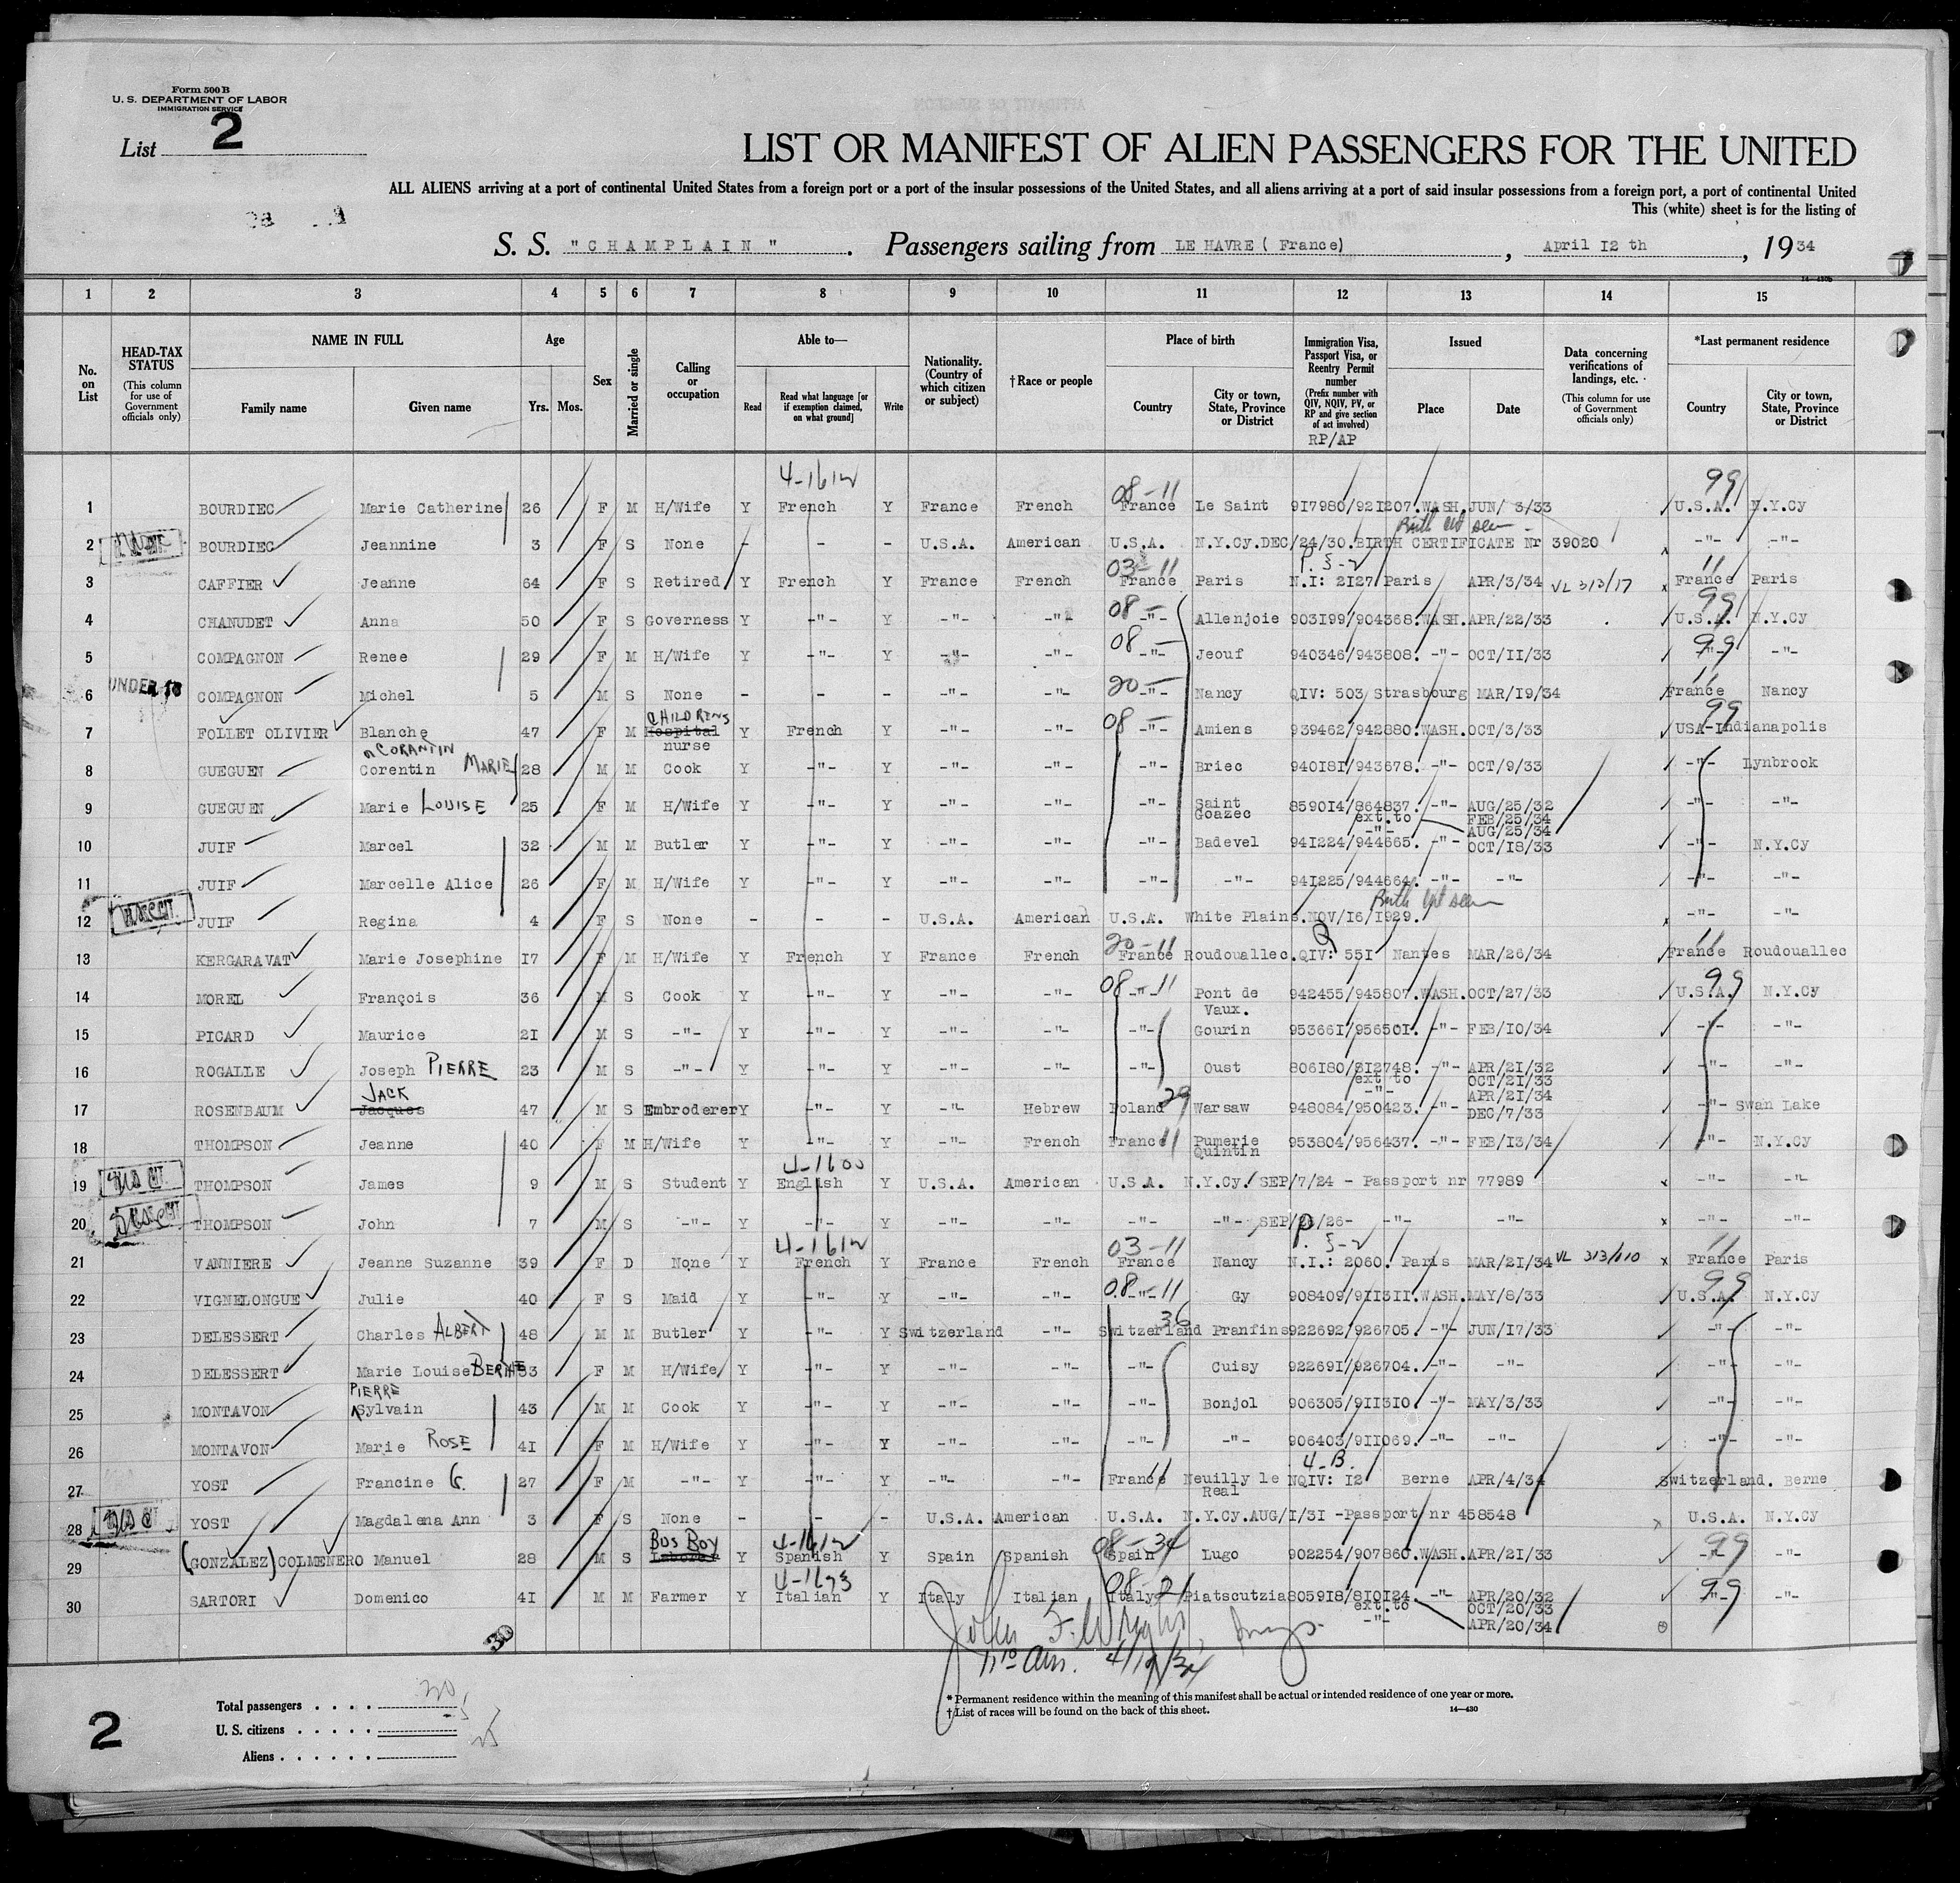 Form 500 B
U. S. DEPARTMENT OF LABOR
IMMIGRATION SERVICE
List 2
LIST OR MANIFEST OF ALIEN PASSENGERS FOR THE UNITED
ALL ALIENS arriving at a port of continental United States from a foreign port or a port of the insular possessions of the United States, and all aliens arriving at a port of said insular possessions from a foreign port, a port of continental United
This (white) sheet is for the listing of
S. S. "CHAMPLAIN". Passengers sailing from LE HAVRE ( France), April 12 th, 1934
1 2 3 4 5 6 7 8 9 10 11 12 13 14 15
No. on List
HEAD-TAX STATUS (This column for use of Government officials only)
NAME IN FULL
Family name
Given name
Age
Yrs. Mos.
Sex
Married or single
Calling or occupation
Able to—
Read
Read what language [or if exemption claimed, on what ground]
Write
Nationality. (Country of which citizen or subject)
† Race or people
Place of birth
Country
City or town, State, Province or District
Immigration Visa, Passport Visa, or Reentry Permit number (Prefix number with QIV, NQIV, PV, or RP and give section of act involved)
RP/AP
Issued
Place
Date
Data concerning verifications of landings, etc. (This column for use of Government officials only)
*Last permanent residence
Country
City or town, State, Province or District
4-1612 08-11 99
1 BOURDIEC Marie Catherine 26 F M H/Wife Y French Y France French France Le Saint 917980/921207. WASH. JUN/ 3/33 U.S.A. N.Y.Cy
Birth crt seen
2 BOURDIEC Jeannine 3 F S None - - - U.S.A. American U.S.A. N.Y.Cy.DEC/24/30.BIRTH CERTIFICATE Nr 39020 -"- -"-
03-11 P. 3-2 11
3 CAFFIER Jeanne 64 F S Retired Y French Y France French France Paris N.I: 2127 Paris APR/3/34 VL 313/17 France Paris
08- 99
4 CHANUDET Anna 50 F S Governess Y -"- Y -"- -"- -"- Allenjoie 903199/904368. WASH. APR/22/33 U.S.A. N.Y.Cy
08- 99
5 COMPAGNON Renee 29 F M H/Wife Y -"- Y -"- -"- -"- Jeouf 940346/943808. -"- OCT/11/33 -"- -"-
UNDER 16 20- 11
6 COMPAGNON Michel 5 M S None - - - -"- -"- -"- Nancy QIV: 503 Strasbourg MAR/19/34 France Nancy
CHILDRENS 08- 99
7 FOLLET OLIVIER Blanche 47 F M Hospital nurse Y French Y -"- -"- -"- Amiens 939462/942880. WASH. OCT/3/33 USA-Indianapolis
CORANTIN
8 GUEGUEN Corentin MARIE 28 M M Cook Y -"- Y -"- -"- -"- Briec 940181/943678. -"- OCT/9/33 -"- Lynbrook
9 GUEGUEN Marie LOUISE 25 F M H/Wife Y -"- Y -"- -"- -"- Saint Goazec 859014/864837. -"- AUG/25/32 -"- -"-
ext.to FEB/25/34
-"- AUG/25/34
10 JUIF Marcel 32 M M Butler Y -"- Y -"- -"- -"- Badevel 941224/944665. -"- OCT/18/33 -"- N.Y.Cy
11 JUIF Marcelle Alice 26 F M H/Wife Y -"- Y -"- -"- -"- -"- 941225/944664. -"- -"- -"- -"-
Birth crt seen
12 JUIF Regina 4 F S None - - - U.S.A. American U.S.A. White Plains.NOV/16/1929. -"- -"-
20-11 11
13 KERGARAVAT Marie Josephine 17 F M H/Wife Y French Y France French France Roudouallec. QIV: 551 Nantes MAR/26/34 France Roudouallec
08-11 99
14 MOREL François 36 M S Cook Y -"- Y -"- -"- -"- Pont de Vaux. 942455/945807. WASH. OCT/27/33 U.S.A. N.Y.Cy
15 PICARD Maurice 21 M S -"- Y -"- Y -"- -"- -"- Gourin 953661/956501. -"- FEB/10/34 -"- -"-
16 ROGALLE Joseph PIERRE 23 M S -"- Y -"- Y -"- -"- -"- Oust 806180/812748. -"- APR/21/32 -"- -"-
ext to OCT/21/33
-"- APR/21/34
JACK 29
17 ROSENBAUM Jacques 47 M S Embroderer Y -"- Y -"- Hebrew Poland Warsaw 948084/950423. -"- DEC/7/33 -"- Swan Lake
18 THOMPSON Jeanne 40 F M H/Wife Y -"- Y -"- French France 11 Pumerie Quintin 953804/956437. -"- FEB/13/34 -"- N.Y.Cy
4-1600
19 THOMPSON James 9 M S Student Y English Y U.S.A. American U.S.A. N.Y.Cy. SEP/7/24 - Passport nr 77989 -"- -"-
20 THOMPSON John 7 M S -"- Y -"- Y -"- -"- -"- -"- SEP/26/26- -"- -"- -"- -"-
4-1612 03-11 P. 3-2 11
21 VANNIERE Jeanne Suzanne 39 F D None Y French Y France French France Nancy N.I.: 2060. Paris MAR/21/34 VL 313/110 France Paris
08-11 99
22 VIGNELONGUE Julie 40 F S Maid Y -"- Y -"- -"- -"- Gy 908409/911311. WASH. MAY/8/33 U.S.A. N.Y.Cy
36
23 DELESSERT Charles ALBERT 48 M M Butler Y -"- Y Switzerland -"- Switzerland Pranfins 922692/926705. -"- JUN/17/33 -"- -"-
24 DELESSERT Marie Louise BERTHE 33 F M H/Wife Y -"- Y -"- -"- -"- Cuisy 922691/926704. -"- -"- -"- -"-
PIERRE
25 MONTAVON Sylvain 43 M M Cook Y -"- Y -"- -"- -"- Bonjol 906305/911310. -"- MAY/3/33 -"- -"-
26 MONTAVON Marie ROSE 41 F M H/Wife Y -"- Y -"- -"- -"- -"- 906403/911069. -"- -"- -"- -"-
4-B.
27 YOST Francine G. 27 F M -"- Y -"- Y -"- -"- France 11 Neuilly le Real NQIV: 12 Berne APR/4/34 Switzerland. Berne
28 YOST Magdalena Ann 3 F S None - - - U.S.A. American U.S.A. N.Y.Cy.AUG/1/31 -Passport nr 458548 U.S.A. N.Y.Cy
BUS BOY 4-1612 08-34 99
29 (GONZALEZ) COLMENERO Manuel 28 M S Y Spanish Y Spain Spanish Spain Lugo 902254/907860. WASH. APR/21/33 -"- -"-
4-1693 08-21 99
30 SARTORI Domenico 41 M M Farmer Y Italian Y Italy Italian Italy Piatscutzia 805918/810124. -"- APR/20/32 -"- -"-
ext.to OCT/20/33
-"- APR/20/34
30
John F. Wright, Insp.
Total passengers . . . .
U. S. citizens . . . . .
Aliens . . . . . .
2
* Permanent residence within the meaning of this manifest shall be actual or intended residence of one year or more.
† List of races will be found on the back of this sheet.
14—430